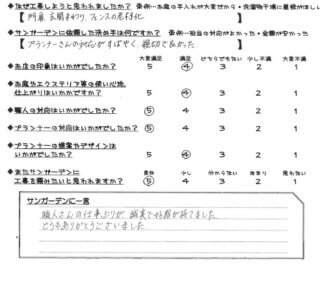 ◆なぜ工事しようと思われましたか？ 条例…お庭の手入れが大変だから・洗濯物干場に屋根がほしい
【 門扉、玄関まわり、フェンスの老朽化 】
◆サンガーデンに依頼した決め手は何ですか？ 条例…担当の対応がよかった・金額が安かった
【 プランナーさんの対応がすばやく、親切で良かった 】
大変満足 満足 どちらでもない 少し不満 大変不満
◆お店の印象はいかがでしたか？ 5 ④ 3 2 1
◆お庭やエクステリア等の使い心地、
仕上がりはいかがですか？ 5 ④ 3 2 1
◆職人の対応はいかがでしたか？ ⑤ 4 3 2 1
◆プランナーの対応はいかがでしたか？ ⑤ 4 3 2 1
◆プランナーの提案やデザインは
いかがでしたか？ 5 ④ 3 2 1
◆またサンガーデンに 是非 少し 分からない あまり 思わない
工事を頼みたいと思われますか？ ⑤ 4 3 2 1
サンガーデンに一言
職人さんの仕事ぶりが、誠実で好感が持てました
どうもありがとうございました